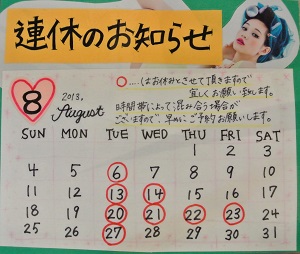 連休のお知らせ
8
2013.
August
○....はお休みとさせて頂きますので
宜しくお願い致します。
時間帯によって混み合う場合が
ございますので、早めにご予約お願いします。
SUN MON TUE WED THU FRI SAT
1 2 3
4 5 6 7 8 9 10
11 12 13 14 15 16 17
18 19 20 21 22 23 24
25 26 27 28 29 30 31